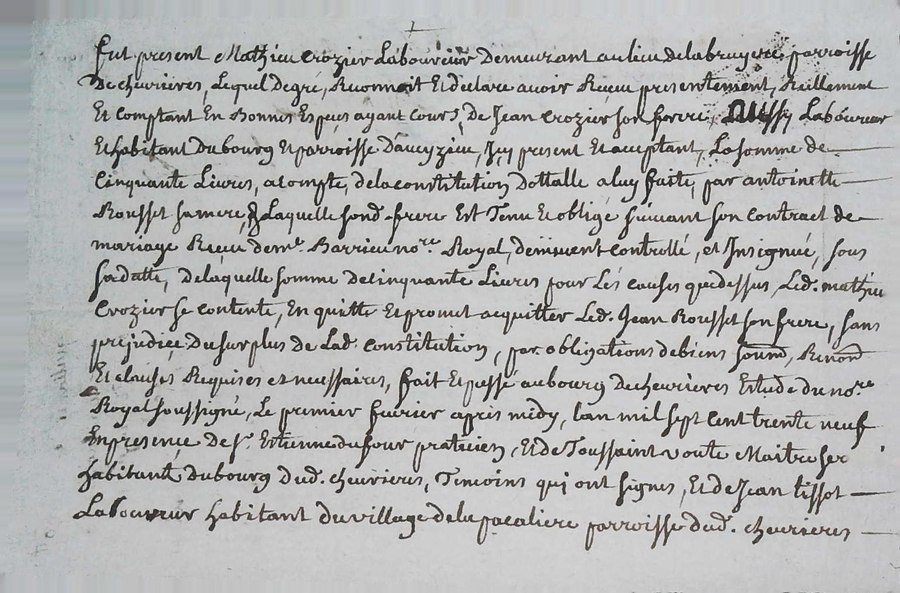 fut present Mathieu crozier Laboureur Demeurant au lieu de la bruyere parroisse
De chevrieres, Lequel Degré, Reconnoit Et declare avoir Receu presentement, Reellement
Et Comptant En Bonnes Especes ayant cours, De Jean Crozier son frere, aussy Laboureur
Et habitant Du bourg Et parroisse D'aveyzieu, Icy present Et acceptant, La somme de
Cinquante Livres, a compte, de la constitution Dottalle a luy faite, par antoinette
Rousset sa mere, & Laquelle sond. frere Est Tenu Et obligé suivant son contract de
mariage Receu de me. Barrieu nore. Royal, deuement controllé, et Insignué, sous
sa datte, De laquelle somme de cinquante Livres pour Les causes que dessus, Led. mathieu
Crozier se contente, En quitte Et promet acquitter Led. Jean Rousset son frere, sans
prejudice du surplus de Lad. constitution, par obligations de biens soumn, Renonn
Et clauses Requises et necessaires, fait Et passé au bourg De chevrieres Estude du nore.
Royal soussigné, Le premier fevrier apres midy, Lan mil sept cent trente neuf
En presence de Sr. Estienne dufour praticien, Et de Toussaint voute Maitre ser
habitants Du bourg dud. chevrieres, Temoins qui ont signes, Et de Jean tissot
Laboureur habitant du village de la pacaliere parroisse dud. chevrieres